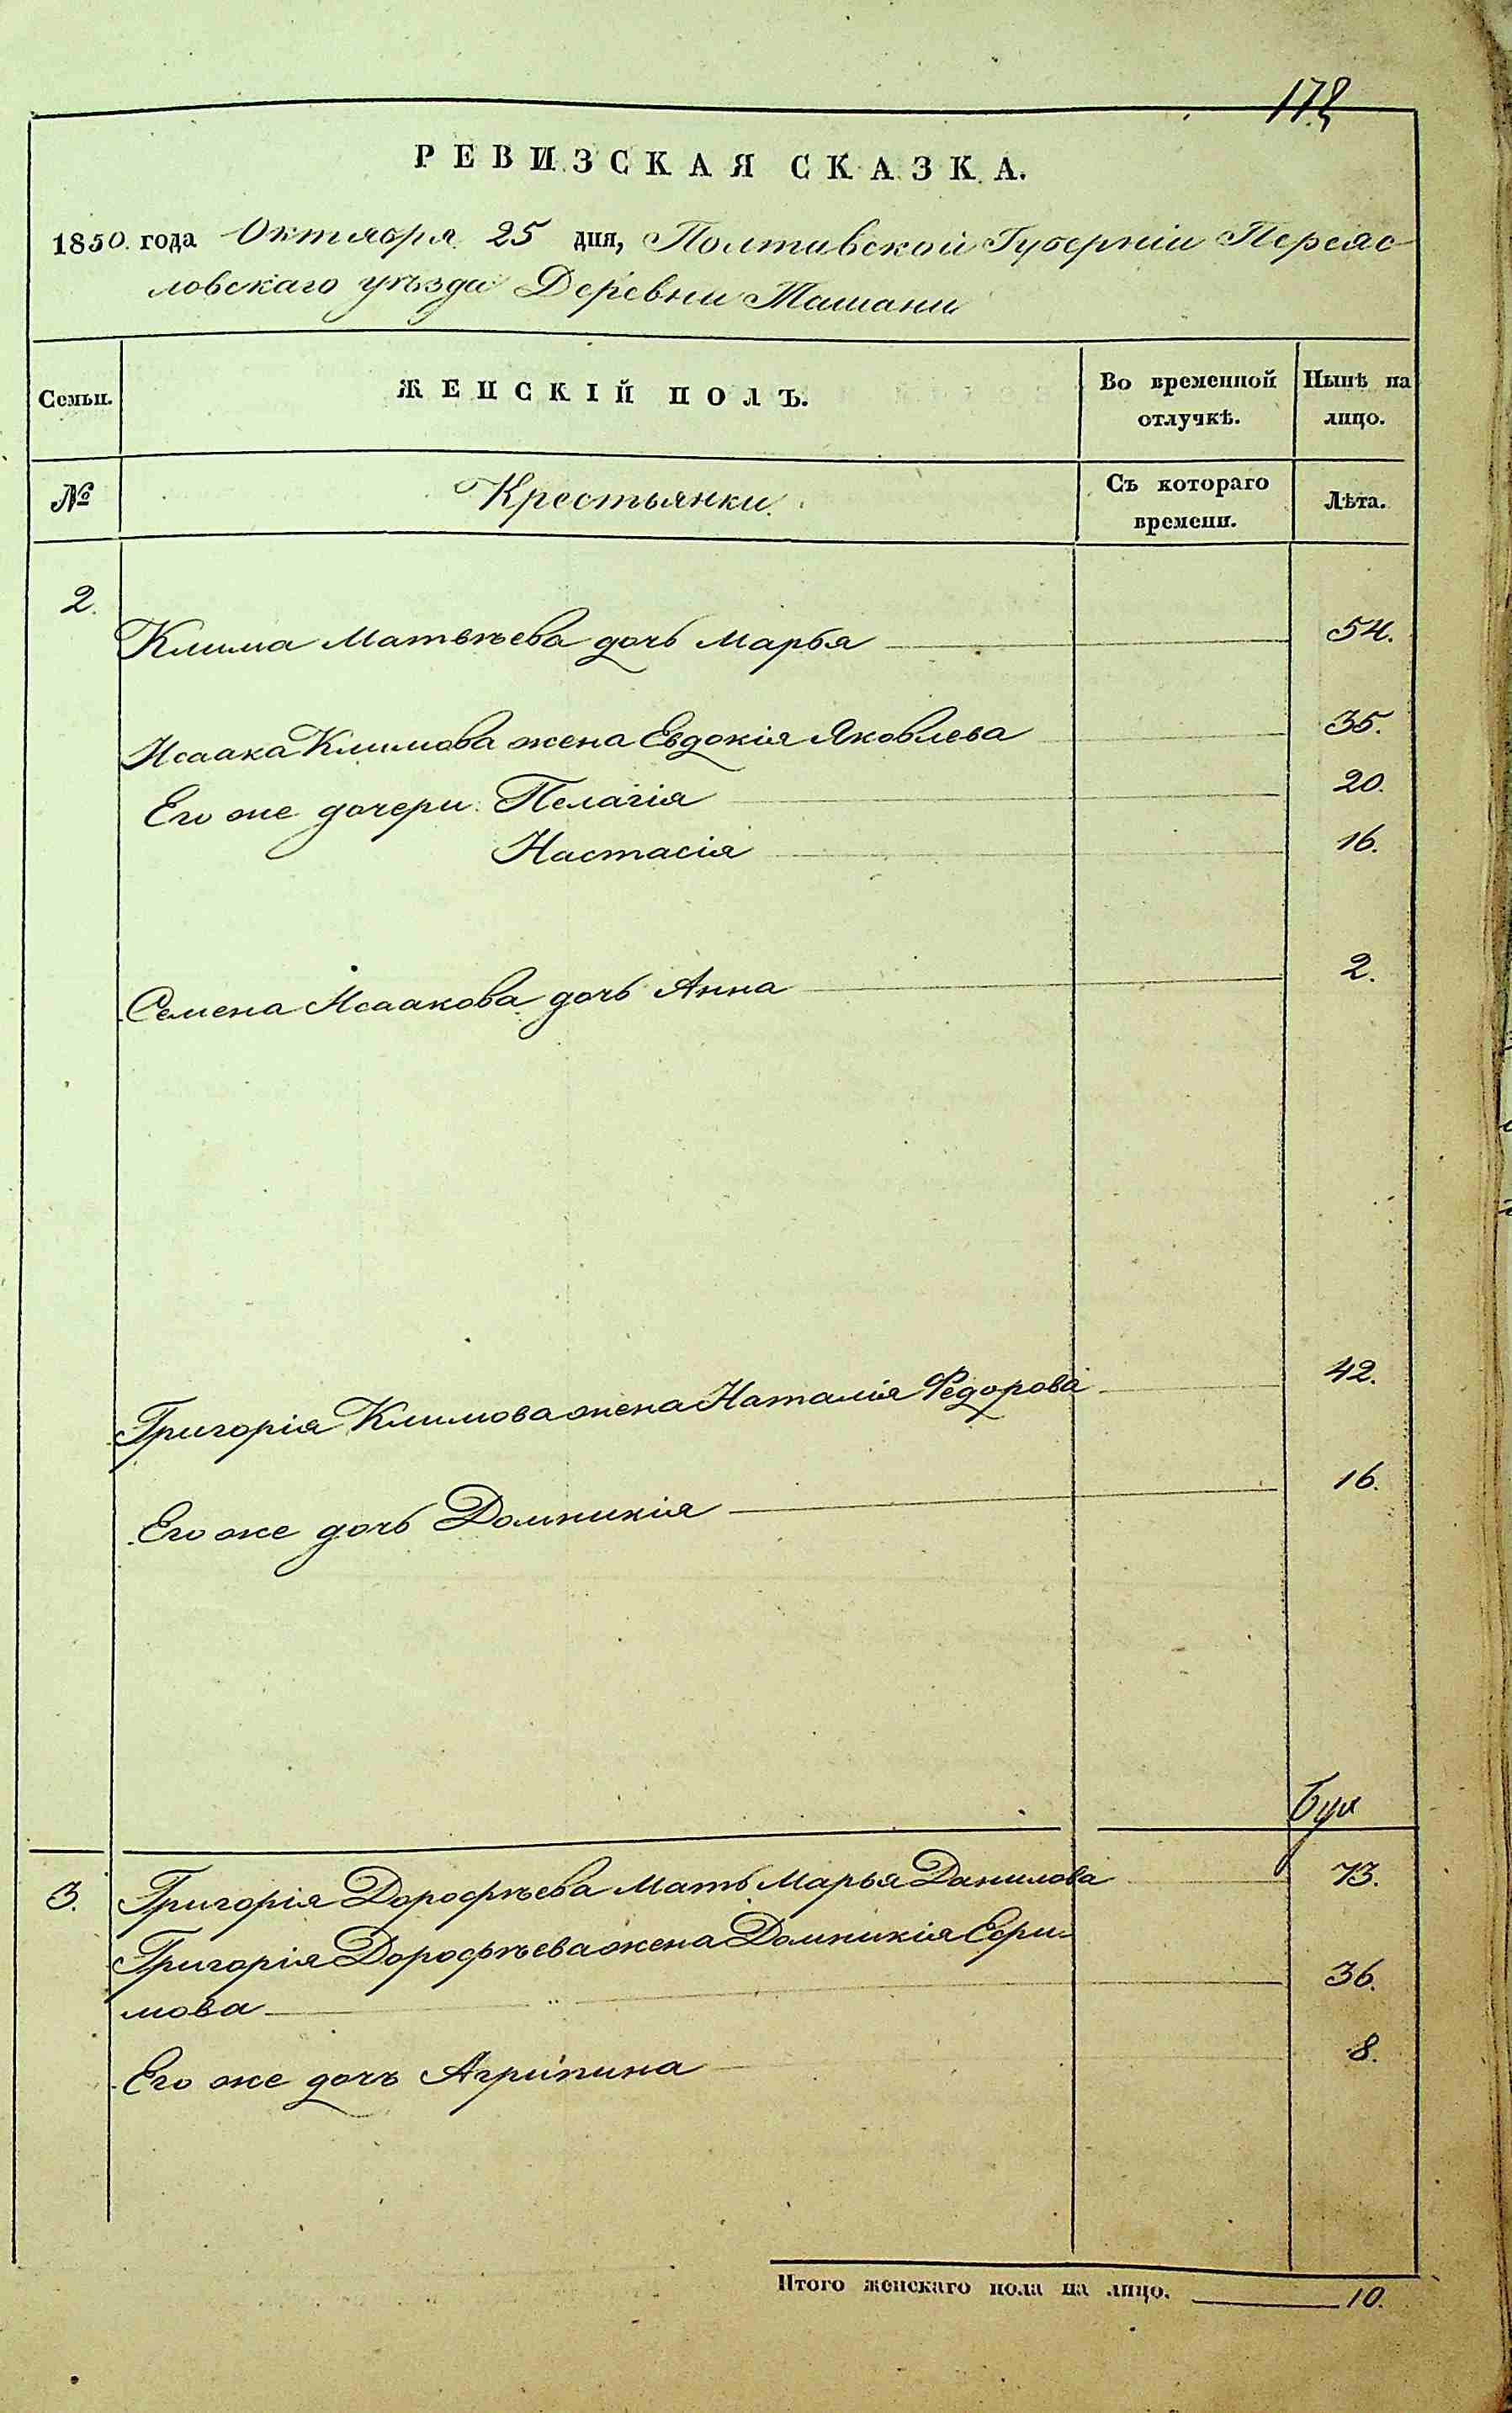 172
РЕВИЗСКАЯ СКАЗКА.
1850. года Октября 25 дня, Полтавской Губерніи Переяс
ловскаго уѣзда Деревни Ташани
Семьи. ЖЕНСКІЙ ПОЛЪ. Во временной отлучкѣ. Нынѣ на лицо.
№ Крестьянки. Съ котораго времени. Лѣта.
2.
Клима Матвѣева дочь Марья 54.
Исаака Климова жена Евдокія Яковлева 35.
Его же дочери. Пелагія 20.
Настасія 16.
Семена Исаакова дочь Анна 2.
Григорія Климова жена Наталія Федорова 42.
Его же дочь Домникія 16.
3. Григорія Дорофѣева Мать Марья Данилова 73.
Григорія Дорофѣева жена Домникія Ефри-
мова 36.
Его же дочъ Агрипина 8.
Итого женскаго пола на лицо. 10.